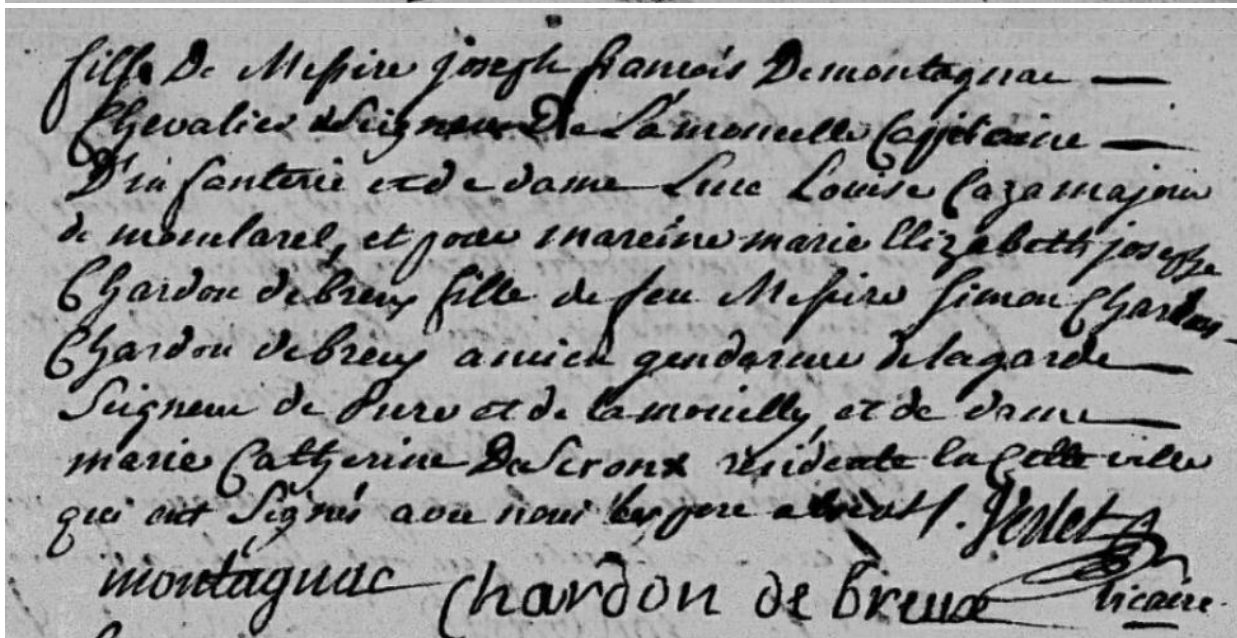 fille De Messire joseph francois Demontagnac
Chevalier Seigneur De Lamoncelle Capitaine
D'infanterie et de dame Luce Louise Cazamajou
de monclarel, et pour mareine marie Elizabeth josephe
Chardon debreux fille de feu Messire Simon Chardon
Chardon debreux ancien gendarme de la garde
Seigneur de Pure et de lamouilly, et de dame
marie Catherine residente ville
qui ont Signés avec nous le pere absent.
montagnac Chardon de breux vicaire.